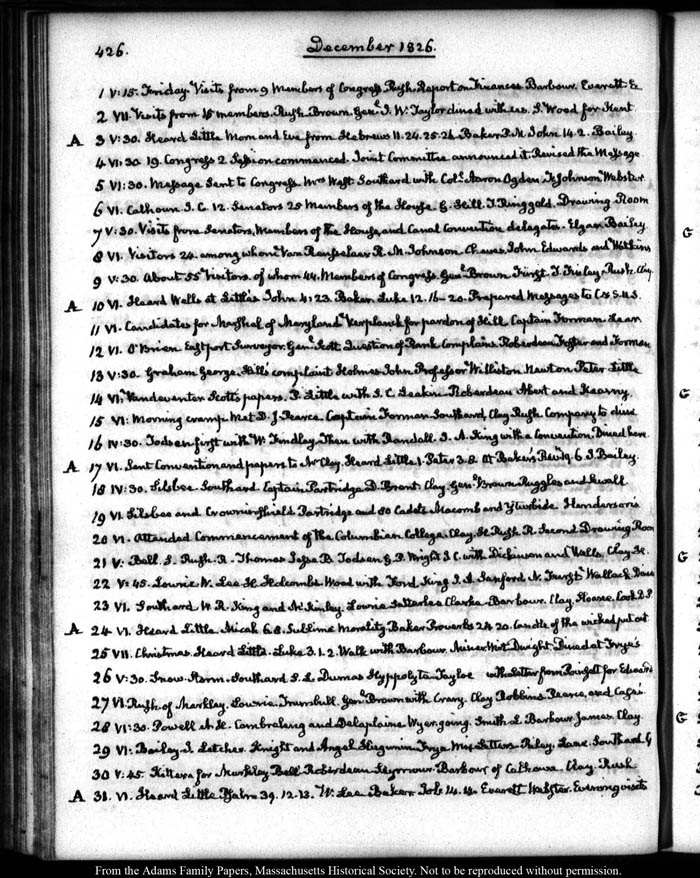 426. December 1826.
1 V:15. Friday. Visits from 9 Members of Congress Rush. Report on Finances Barbour. Everett E.
2 VII. Visits from 15 members. Rush Brown Genl. J. W. Taylor dined with us. S. Wood for Kent
A 3 V:30. Heard Little Mom and Eve from Hebrews 11.24.25.26 Baker P.M. John 14.2. Bailey
4 VI:30. 19. Congress 2 Session commenced. Joint Committee announced it. Revised the Message
5 VI:30. Message Sent to Congress. Mrs Weft. Southard with Coll. Aaron Ogden. Johnson Webster
6 VI. Calhoun J. C. 12. Senators 25 Members of the House. G. Hill. T. Ringgold. Drawing Room
7 V:30. Visits from Senators, Members of the House, and Canal Convention delegates. Elgar. Bailey
8 VI. Visitors 24. among whom Van Rensselaer R. M. Johnson. Chaves John Edwards and Watkins
9 V:30. About 55 Visitors. of whom 44. Members of Congress. Genl. Brown Fürst. J. Finlay. Rush. Clay
A 10 VI. Heard Wells at Little's John 4:23. Baker Luke 12.16-20. Prepared Messages to C & S. U.S.
11 VI. Candidates for Marshal of Maryland. Verplanck for pardon of Hill Captain Forman
12 VI. O'Brien Eastport Surveyor. Genl. Scott. Question of Rank Complains. Roberdeau Foster and Forman
13 V:30. Graham George. Hill's complaint Holmes John. Professor Williston Newton Peter Little
14 VI: Vandeventer Scott's papers. P. Little with S. C. Leakin Roberdeau Abert and Kearny.
15 VI: Morning cramp. Met D. J. Pearce. Captain Forman. Southard, Clay Rush. Company to dine
16 IV:30. Todsen first with W. Findlay. Then with Randall. J. A. King with a Convention. Dined here
A 17 VI. Sent Convention and papers to Mr Clay. Heard Little 1. Peter 3.8. At Baker's Rev. 19.6 J. Bailey.
18 IV:30. Silsbee Southard Captain Partridge D. Brent Clay Genl. Brown Ruggles and Sewall
19 VI. Silsbee and Crowninshield Partridge and 50 Cadets. Macomb and Yturbide Henderson's
20 VI. Attended Commencement of the Columbian College. Clay, H. Rush. R. Second Drawing Room
21 V: Ball. S. Rush. R. Thomas Jesse B. Todsen & P. Wright S. C. with Dickinson and Wells. Clay H.
22 V:45. Lowrie W. Lee H. Holcombe Wood with Ford. King J. A. Sanford. N. Furst Wallack
23 VI. Southard W. R. King and McKinley. Lowrie Satterlee Clarke. Barbour. Clay. Hoare. Cook D. P
A 24 VI. Heard Little. Micah 6.8. Sublime Morality. Baker Proverbs 24.20. Candle of the wicked put out
25 VII. Christmas. Heard Little. Luke 3.1.2. Walk with Barbour. Miner Wirt Dwight. Dined at Frye's
26 V:30. Snow Storm. Southard S. L. Dumas Hyppolyta Tayloe with letter from Poinsett for Edward
27 VI. Rush of Markley. Lowrie, Trumbull. Genl. Brown with Crary. Clay Robbins. Pearce, and Cases
28 VI:30. Powell A. H. Cambreleng and Delaplaine Wyer going. Smith S. Barbour James. Clay.
29 VI: Bailey J. Letcher. Knight and Angel Frye Miss Sitters. Riley, Lane. Southard
30 V:45. Kittera for Markley Ball. Roberdeau. Seymour. Barbour of Calhoun. Clay. Rush
A 31. VI. Heard Little Psalm 39.12-13. W. Lee Baker Job 14.14. Everett Webster. Evening visits
G
G
G
G
From the Adams Family Papers, Massachusetts Historical Society. Not to be reproduced without permission.